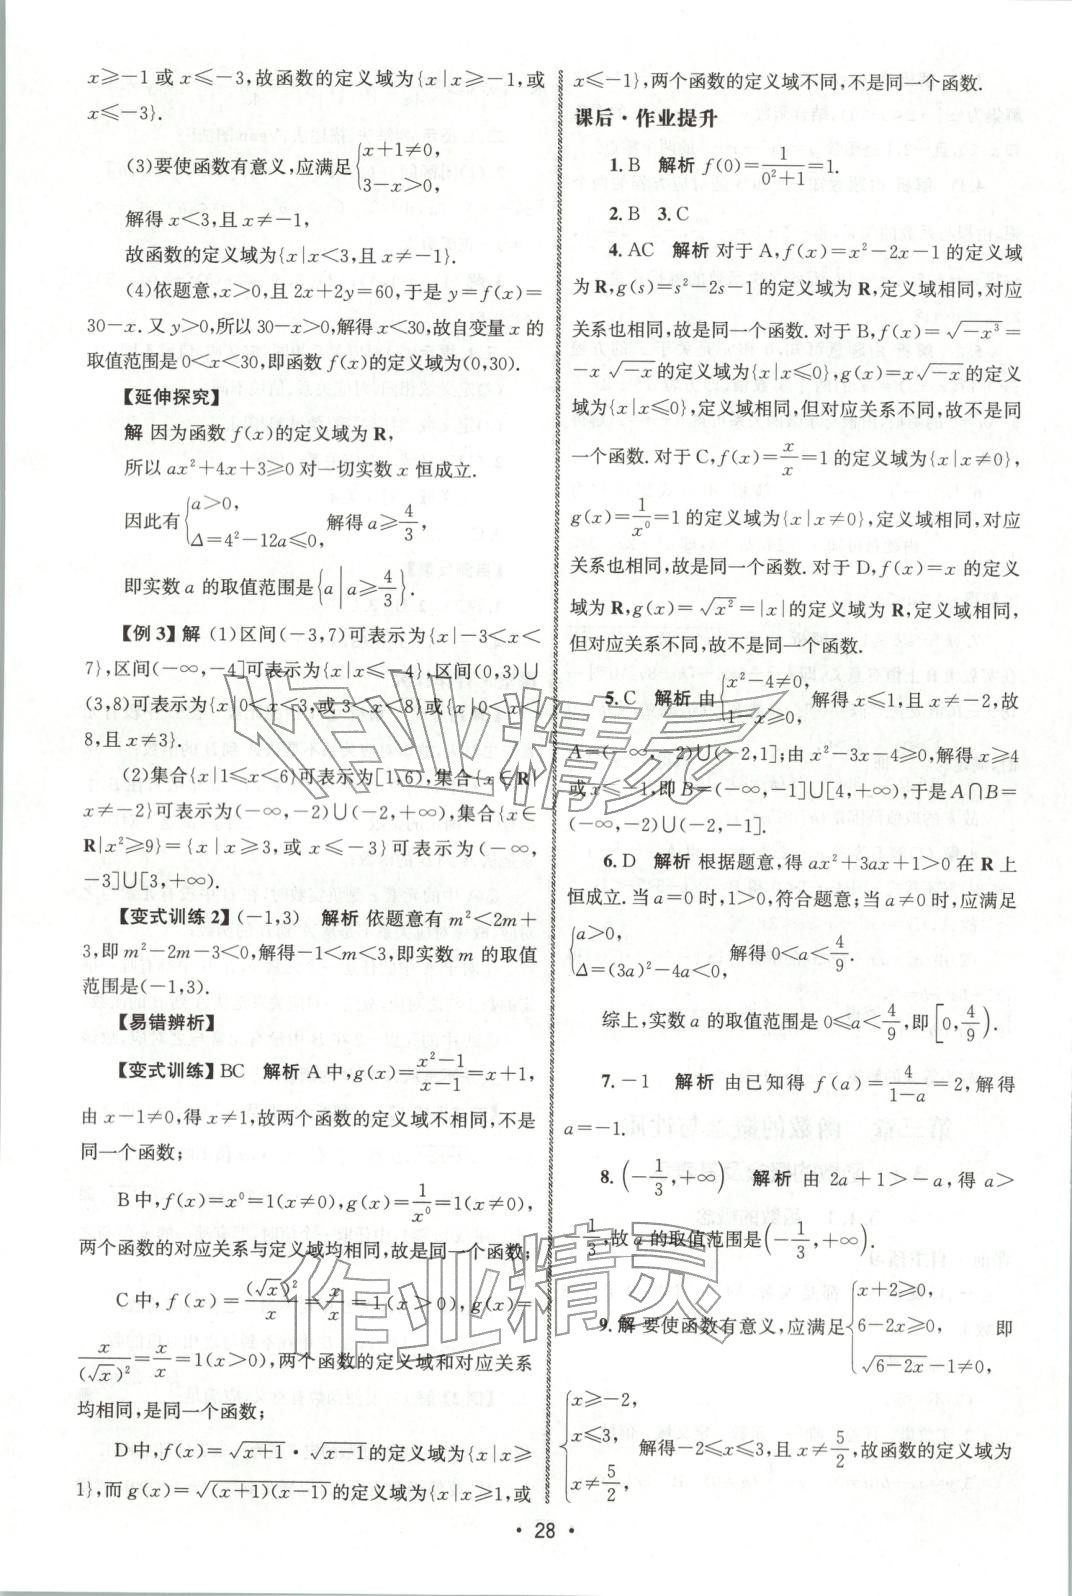 x≥−1 或 x≤−3,故函数的定义域为{x|x≥−1,或
x≤−3}.
(3)要使函数有意义,应满足{x+1≠0, 3−x>0,
解得 x<3,且 x≠−1,
故函数的定义域为{x|x<3,且 x≠−1}.
(4)依题意,x>0,且 2x+2y=60,于是 y=f(x)=
30−x. 又 y>0,所以 30−x>0,解得 x<30,故自变量 x 的
取值范围是 0<x<30,即函数 f(x)的定义域为(0,30).
【延伸探究】
解 因为函数 f(x)的定义域为 R,
所以 ax²+4x+3≥0 对一切实数 x 恒成立.
因此有{a>0, Δ=4²−12a≤0, 解得 a≥4/3,
即实数 a 的取值范围是{a|a≥4/3}.
【例 3】解 (1)区间(−3,7)可表示为{x|−3<x<
7},区间(−∞,−4]可表示为{x|x≤−4},区间(0,3)∪
(3,8)可表示为{x|0<x<3,或 3<x<8}或{x|0<x<
8,且 x≠3}.
(2)集合{x|1≤x<6}可表示为[1,6),集合{x∈R|
x≠−2}可表示为(−∞,−2)∪(−2,+∞),集合{x∈
R|x²≥9}={x|x≥3,或 x≤−3}可表示为(−∞,
−3]∪[3,+∞).
【变式训练 2】(−1,3) 解析 依题意有 m²<2m+
3,即 m²−2m−3<0,解得−1<m<3,即实数 m 的取值
范围是(−1,3).
【易错辨析】
【变式训练】BC 解析 A 中,g(x)=(x²−1)/(x−1)=x+1,
由 x−1≠0,得 x≠1,故两个函数的定义域不相同,不是
同一个函数;
B 中,f(x)=x⁰=1(x≠0),g(x)=1/x⁰=1(x≠0),
两个函数的对应关系与定义域均相同,故是同一个函数;
C 中,f(x)=(√x)²/x=x/x=1(x>0),g(x)=
x/(√x)²=x/x=1(x>0),两个函数的定义域和对应关系
均相同,是同一个函数;
D 中,f(x)=√(x+1)·√(x−1)的定义域为{x|x≥
1},而 g(x)=√((x+1)(x−1))的定义域为{x|x≥1,或
x≤−1},两个函数的定义域不同,不是同一个函数.
课后·作业提升
1.B 解析 f(0)=1/(0²+1)=1.
2.B 3.C
4.AC 解析 对于 A,f(x)=x²−2x−1 的定义域
为 R,g(s)=s²−2s−1 的定义域为 R,定义域相同,对应
关系也相同,故是同一个函数. 对于 B,f(x)=√(−x³)=
−x√(−x)的定义域为{x|x≤0},g(x)=x√(−x)的定义
域为{x|x≤0},定义域相同,但对应关系不同,故不是同
一个函数. 对于 C,f(x)=x/x=1 的定义域为{x|x≠0},
g(x)=1/x⁰=1 的定义域为{x|x≠0},定义域相同,对应
关系也相同,故是同一个函数. 对于 D,f(x)=x 的定义
域为 R,g(x)=√(x²)=|x|的定义域为 R,定义域相同,
但对应关系不同,故不是同一个函数.
5.C 解析 由{x²−4≠0, 1−x≥0, 解得 x≤1,且 x≠−2,故
A=(−∞,−2)∪(−2,1];由 x²−3x−4≥0,解得 x≥4
或 x≤−1,即 B=(−∞,−1]∪[4,+∞),于是 A∩B=
(−∞,−2)∪(−2,−1].
6.D 解析 根据题意,得 ax²+3ax+1>0 在 R 上
恒成立. 当 a=0 时,1>0,符合题意;当 a≠0 时,应满足
{a>0, Δ=(3a)²−4a<0, 解得 0<a<4/9.
综上,实数 a 的取值范围是 0≤a<4/9,即[0,4/9).
7.−1 解析 由已知得 f(a)=4/(1−a)=2,解得
a=−1.
8.(−1/3,+∞) 解析 由 2a+1>−a,得 a>
−1/3,故 a 的取值范围是(−1/3,+∞).
9.解 要使函数有意义,应满足{x+2≥0, 6−2x≥0, √(6−2x)−1≠0, 即
{x≥−2, x≤3, x≠5/2, 解得−2≤x≤3,且 x≠5/2,故函数的定义域为
·28·
作业精灵
作业精灵